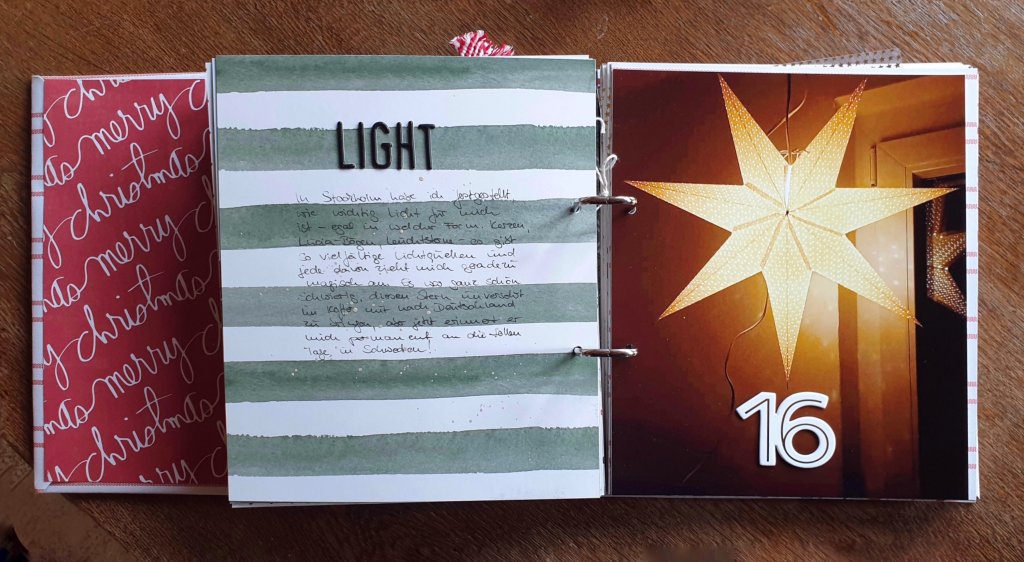 merry
christmas
merry
christmas
merry
christmas
merry
christmas
LIGHT
In Stockholm habe ich festgestellt
wie wichtig Licht für mich
ist - egal in welcher Form. Kerzen,
Lucia-Bögen, Leuchtsterne - es gibt
so vielfältige Lichtquellen und
jede davon zieht mich geradezu
magisch an. Es war ganz schön
schwierig, diesen Stern unversehrt
im Koffer mit nach Deutschland
zu bringen, aber jetzt erinnert er
mich permanent an die tollen
Tage in Schweden!
16